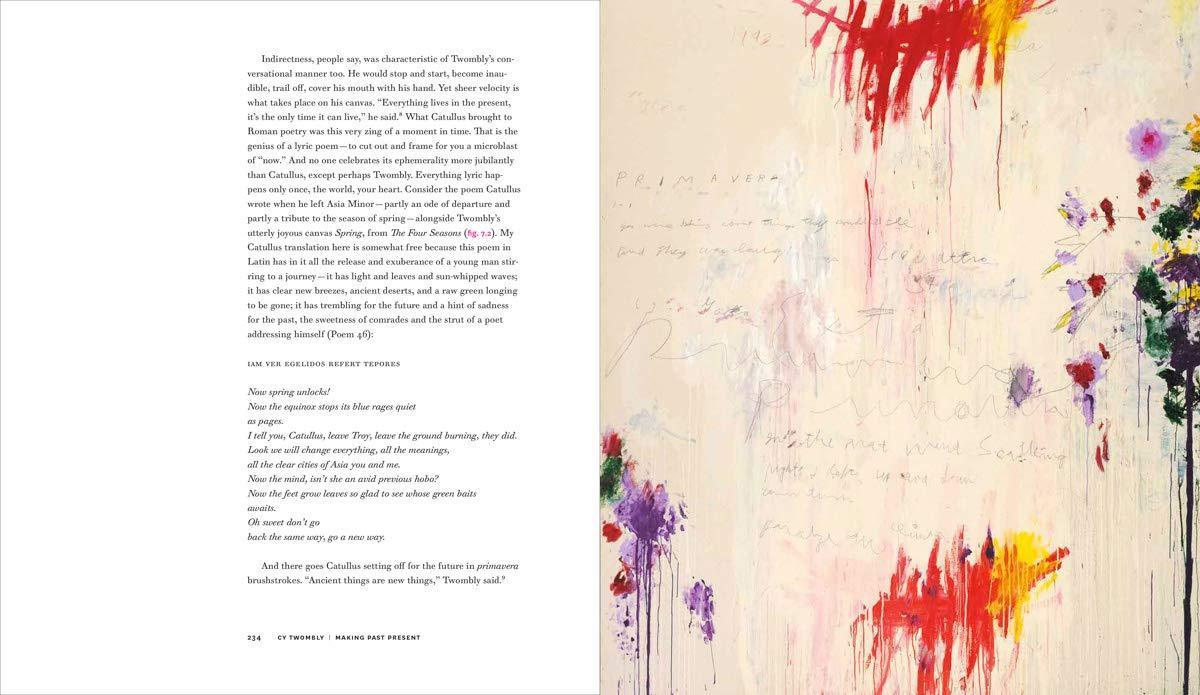 Indirectness, people say, was characteristic of Twombly’s con-
versational manner too. He would stop and start, become inau-
dible, trail off, cover his mouth with his hand. Yet sheer velocity is
what takes place on his canvas. “Everything lives in the present,
it’s the only time it can live,” he said.⁸ What Catullus brought to
Roman poetry was this very zing of a moment in time. That is the
genius of a lyric poem—to cut out and frame for you a microblast
of “now.” And no one celebrates its ephemerality more jubilantly
than Catullus, except perhaps Twombly. Everything lyric hap-
pens only once, the world, your heart. Consider the poem Catullus
wrote when he left Asia Minor—partly an ode of departure and
partly a tribute to the season of spring—alongside Twombly’s
utterly joyous canvas Spring, from The Four Seasons (fig. 7.2). My
Catullus translation here is somewhat free because this poem in
Latin has in it all the release and exuberance of a young man stir-
ring to a journey—it has light and leaves and sun-whipped waves;
it has clear new breezes, ancient deserts, and a raw green longing
to be gone; it has trembling for the future and a hint of sadness
for the past, the sweetness of comrades and the strut of a poet
addressing himself (Poem 46):
IAM VER EGELIDOS REFERT TEPORES
Now spring unlocks!
Now the equinox stops its blue rages quiet
as pages.
I tell you, Catullus, leave Troy, leave the ground burning, they did.
Look we will change everything, all the meanings,
all the clear cities of Asia you and me.
Now the mind, isn’t she an avid previous hobo?
Now the feet grow leaves so glad to see whose green baits
awaits.
Oh sweet don’t go
back the same way, go a new way.
And there goes Catullus setting off for the future in primavera
brushstrokes. “Ancient things are new things,” Twombly said.⁹
234 CY TWOMBLY | MAKING PAST PRESENT
PRIMAVERA
and they
Primavera